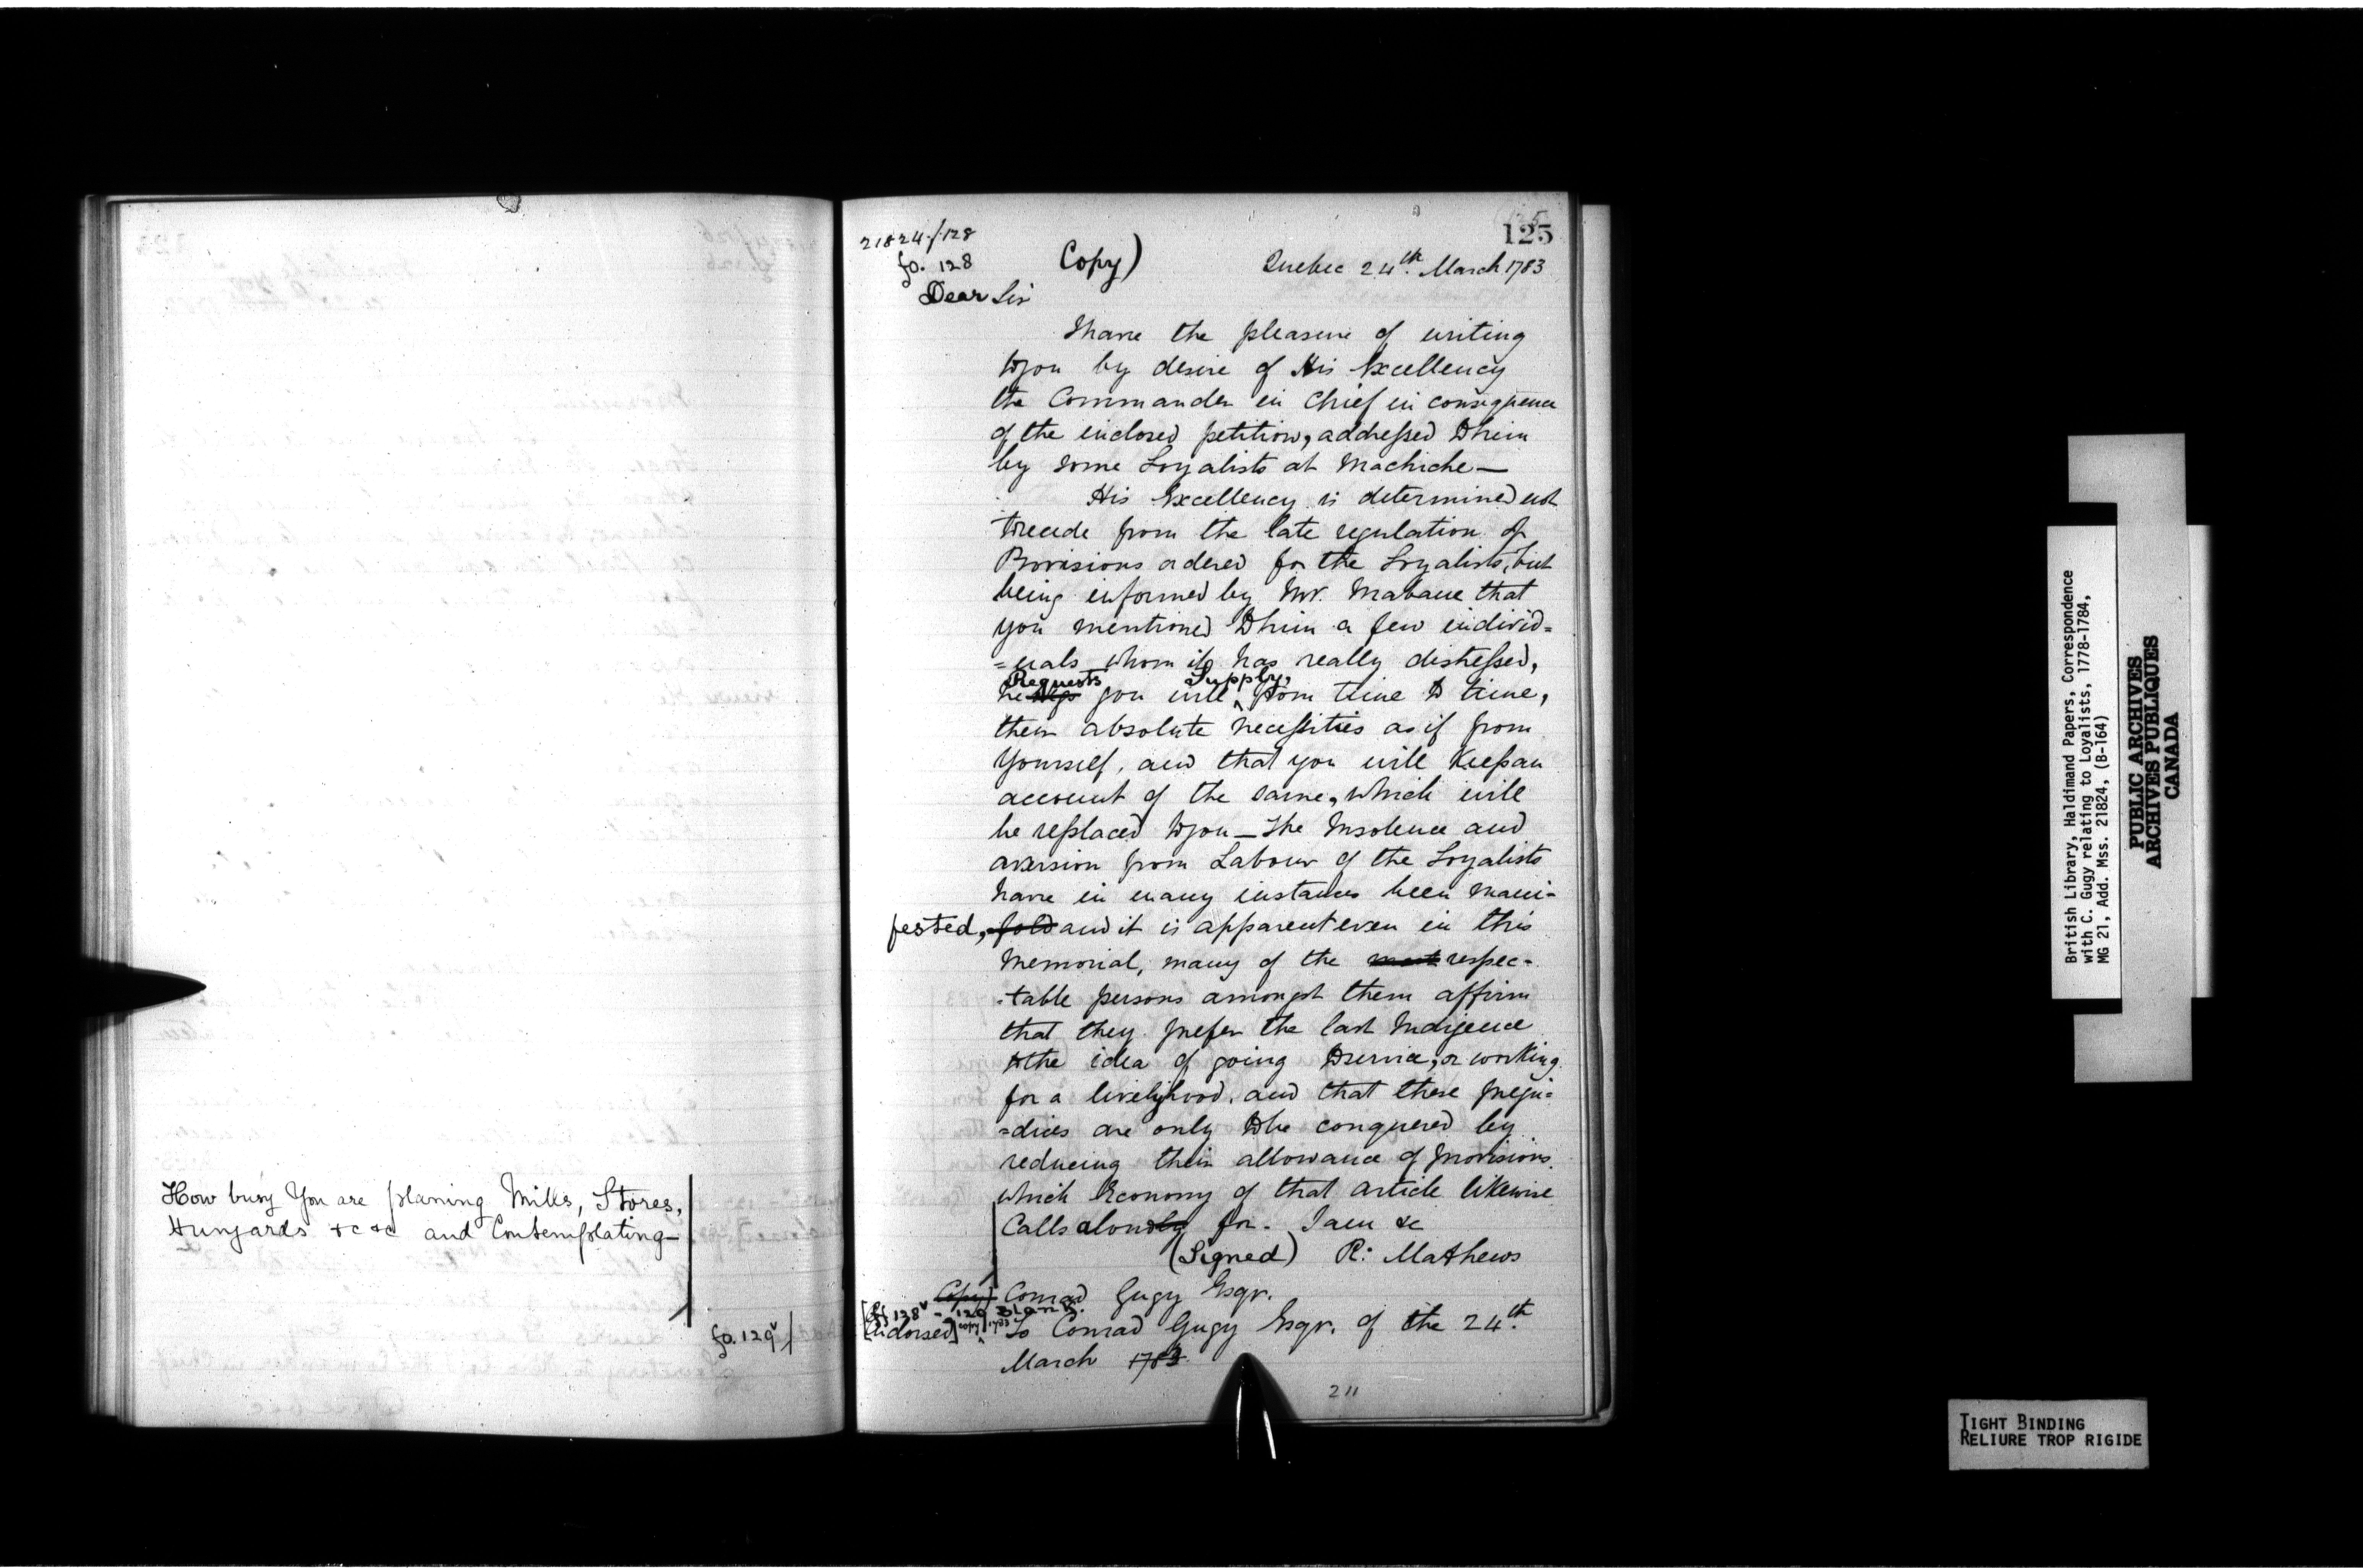 How busy You are planing Mills, Stores,
Hunyards &c &c and Contemplating—
fo. 129v
125
21824/128
fo. 128
Copy)
Quebec 24th. March 1783
Dear Sir
I have the pleasure of writing
to you by desire of His Excellency
the Commander in Chief in consequence
of the inclosed petition, addressed to him
by some Loyalists at Machiche—
His Excellency is determined not
to recede from the late regulation of
Provisions ordered for the Loyalists, but
being informed by Mr. Mabane that
you mentioned to him a few individ=
=uals whom it has really distressed,
Requests Supply,
he begs you will ^ from time to time,
their absolute necessities as if from
Yourself, and that you will Keep an
account of the same, which will
be replaced to you— The Insolence and
aversion from Labour of the Loyalists
have in many instances been mani-
fested, fold and it is apparent even in this
Memorial, many of the most respec-
-table persons amongst them affirm
that they prefer the last Indigence
to the idea of going to service, or working
for a livelyhood, and that these preju=
=dices are only to be conquered by
reducing their allowance of Provisions.
which Economy of that article likewise
Calls aloudly for. I am &c
(Signed) R: Mathews
Copy) Conrad Gugy Esqr.
[ff 128v - 129 Blank.
[Endorsed] copy 1783 ^ To Conrad Gugy Esqr. of the 24th.
March 1783
211
British Library, Haldimand Papers, Correspondence
with C. Gugy relating to Loyalists, 1778-1784,
MG 21, Add. Mss. 21824, (B-164)
PUBLIC ARCHIVES
ARCHIVES PUBLIQUES
CANADA
TIGHT BINDING
RELIURE TROP RIGIDE